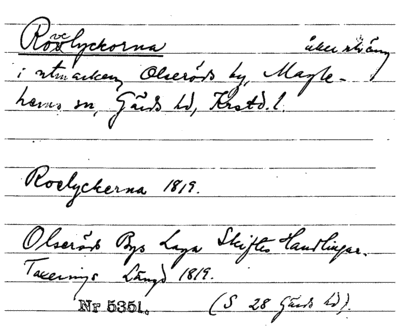 Rovelyckorna åker o äng
i utmarken, Olseröds by, Magle-
hems sn, Gärds hd, Krstd. l.
Rovelyckerna 1819.
Olseröds Bys Laga Skiftes Handlingar.
Taxerings Längd 1819.
Nr 5351. (S 28 Gärds hd).